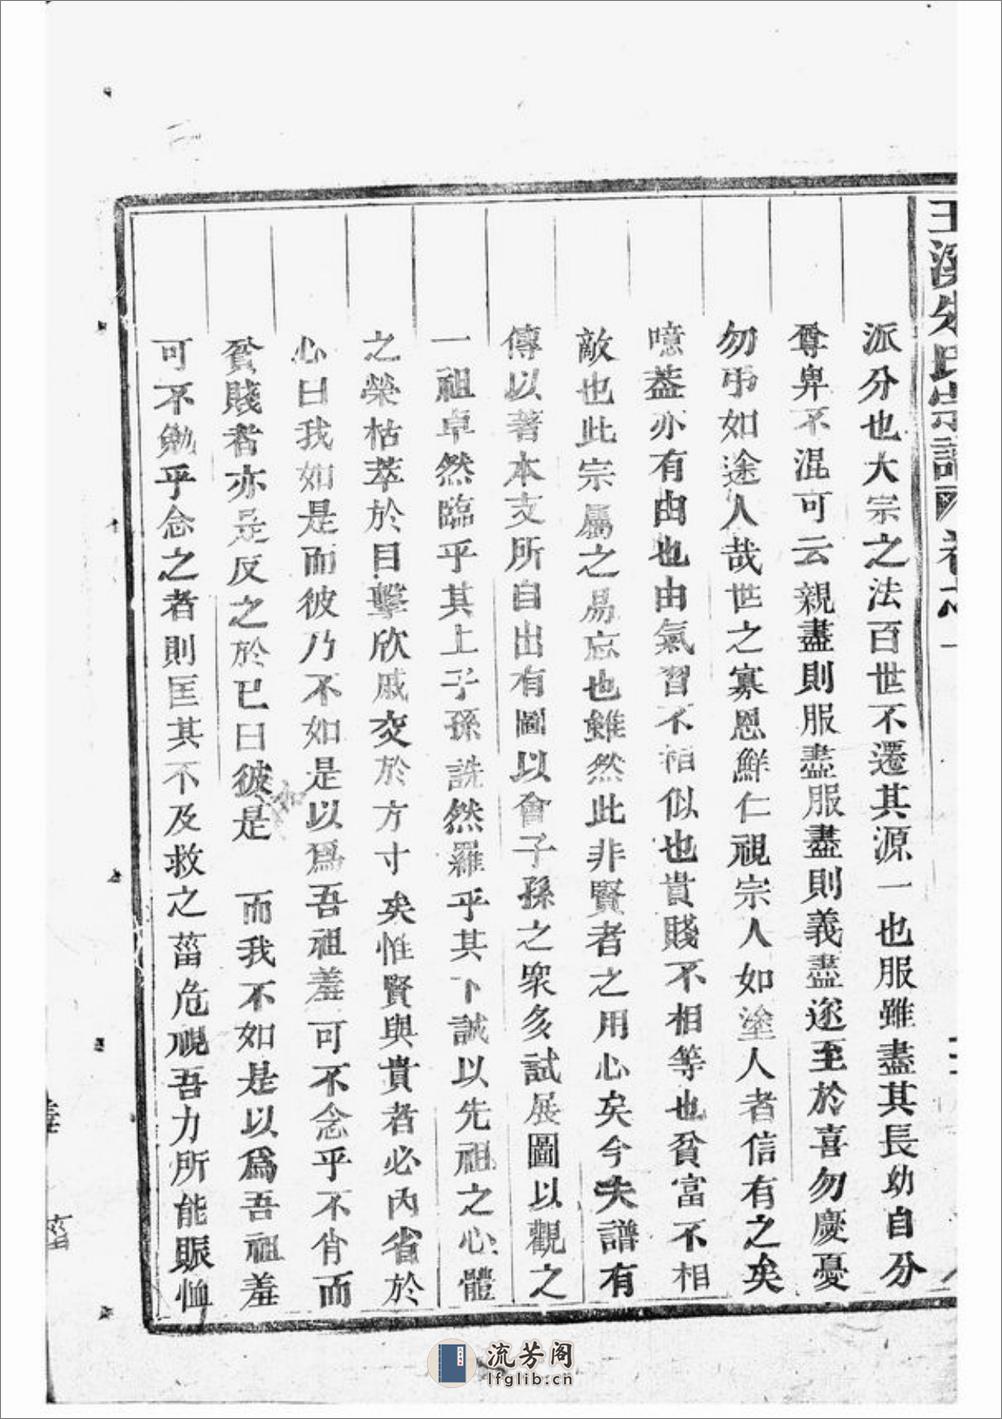 玉溪朱氏宗譜 卷之一
派分也大宗之法百世不遷其源一也服雖盡其長幼自分
尊卑不混可云親盡則服盡服盡則義盡遂至於喜勿慶憂
勿弔如途人哉世之寡恩鮮仁視宗人如塗人者信有之矣
噫葢亦有由也由氣習不相似也貴賤不相等也貧富不相
敵也此宗屬之易忘也雖然此非賢者之用心矣今夫譜有
傳以著本支所自出有圖以會子孫之衆多試展圖以觀之
一祖卓然臨乎其上子孫詵然羅乎其下誠以先祖之心體
之榮枯萃於目擊欣戚交於方寸矣惟賢與貴者必內省於
心曰我如是而彼乃不如是以爲吾祖羞可不念乎不肖而
貧賤者亦是反之於已曰彼如是而我不如是以爲吾祖羞
可不勉乎念之者則匡其不及救之菑危視吾力所能賑恤
流芳阁
lfglib.cn